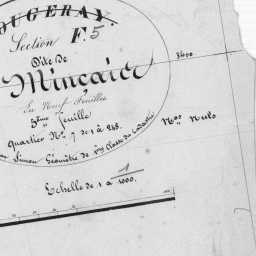 OUGERAY.
Section F. 5
Dite De
Minçaic
En Neuf Feuilles
5ème Feuille
quartier No. 7 de 1 à 268.
Simon Géomètre de 1ère Classe du Cadastre
Echelle de 1 à 1000.